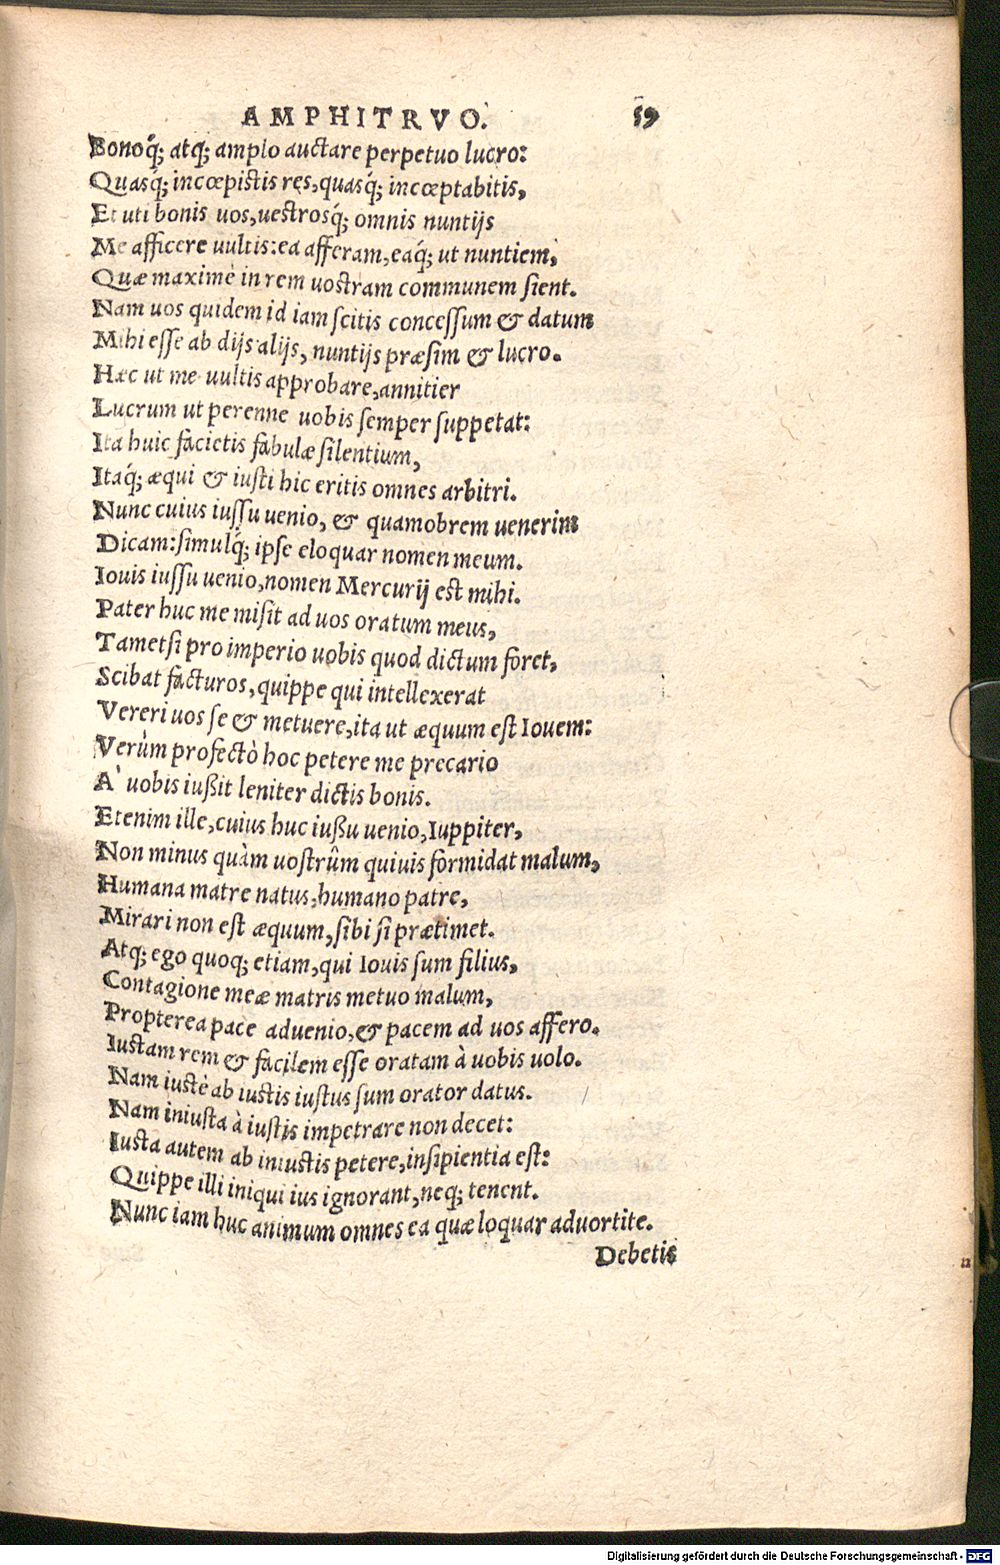 AMPHITRVO. 59
Bonoq́; atq; amplo auctare perpetuo lucro:
Quasq́; incœpistis res, quasq́; incœptabitis,
Et uti bonis uos, uestrosq́; omnis nuntijs
Me afficere uultis: ea afferam, eaq́; ut nuntiem,
Quæ maximè in rem uostram communem sient.
Nam uos quidem id iam scitis concessum & datum
Mihi esse ab dijs alijs, nuntijs præsim & lucro.
Hæc ut me uultis approbare, annitier
Lucrum ut perenne uobis semper suppetat:
Ita huic facietis fabulæ silentium,
Itaq́; æqui & iusti hic eritis omnes arbitri.
Nunc cuius iussu uenio, & quamobrem uenerim
Dicam: simulq́; ipse eloquar nomen meum.
Iouis iussu uenio, nomen Mercurij est mihi.
Pater huc me misit ad uos oratum meus,
Tametsi pro imperio uobis quod dictum foret,
Scibat facturos, quippe qui intellexerat
Vereri uos se & metuere, ita ut æquum est Iouem:
Verùm profectò hoc petere me precario
À uobis iußit leniter dictis bonis.
Etenim ille, cuius huc iußu uenio, Iuppiter,
Non minus quàm uostrûm quiuis formidat malum,
Humana matre natus, humano patre,
Mirari non est æquum, sibi si prætimet.
Atq; ego quoq; etiam, qui Iouis sum filius,
Contagione meæ matris metuo malum,
Propterea pace aduenio, & pacem ad uos affero.
Iustam rem & facilem esse oratam à uobis uolo.
Nam iustè ab iustis iustus sum orator datus.
Nam iniusta à iustis impetrare non decet:
Iusta autem ab iniustis petere, insipientia est:
Quippe illi iniqui ius ignorant, neq; tenent.
Nunc iam huc animum omnes ea quæ loquar aduortite.
Debetis
Digitalisierung gefördert durch die Deutsche Forschungsgemeinschaft - DFG